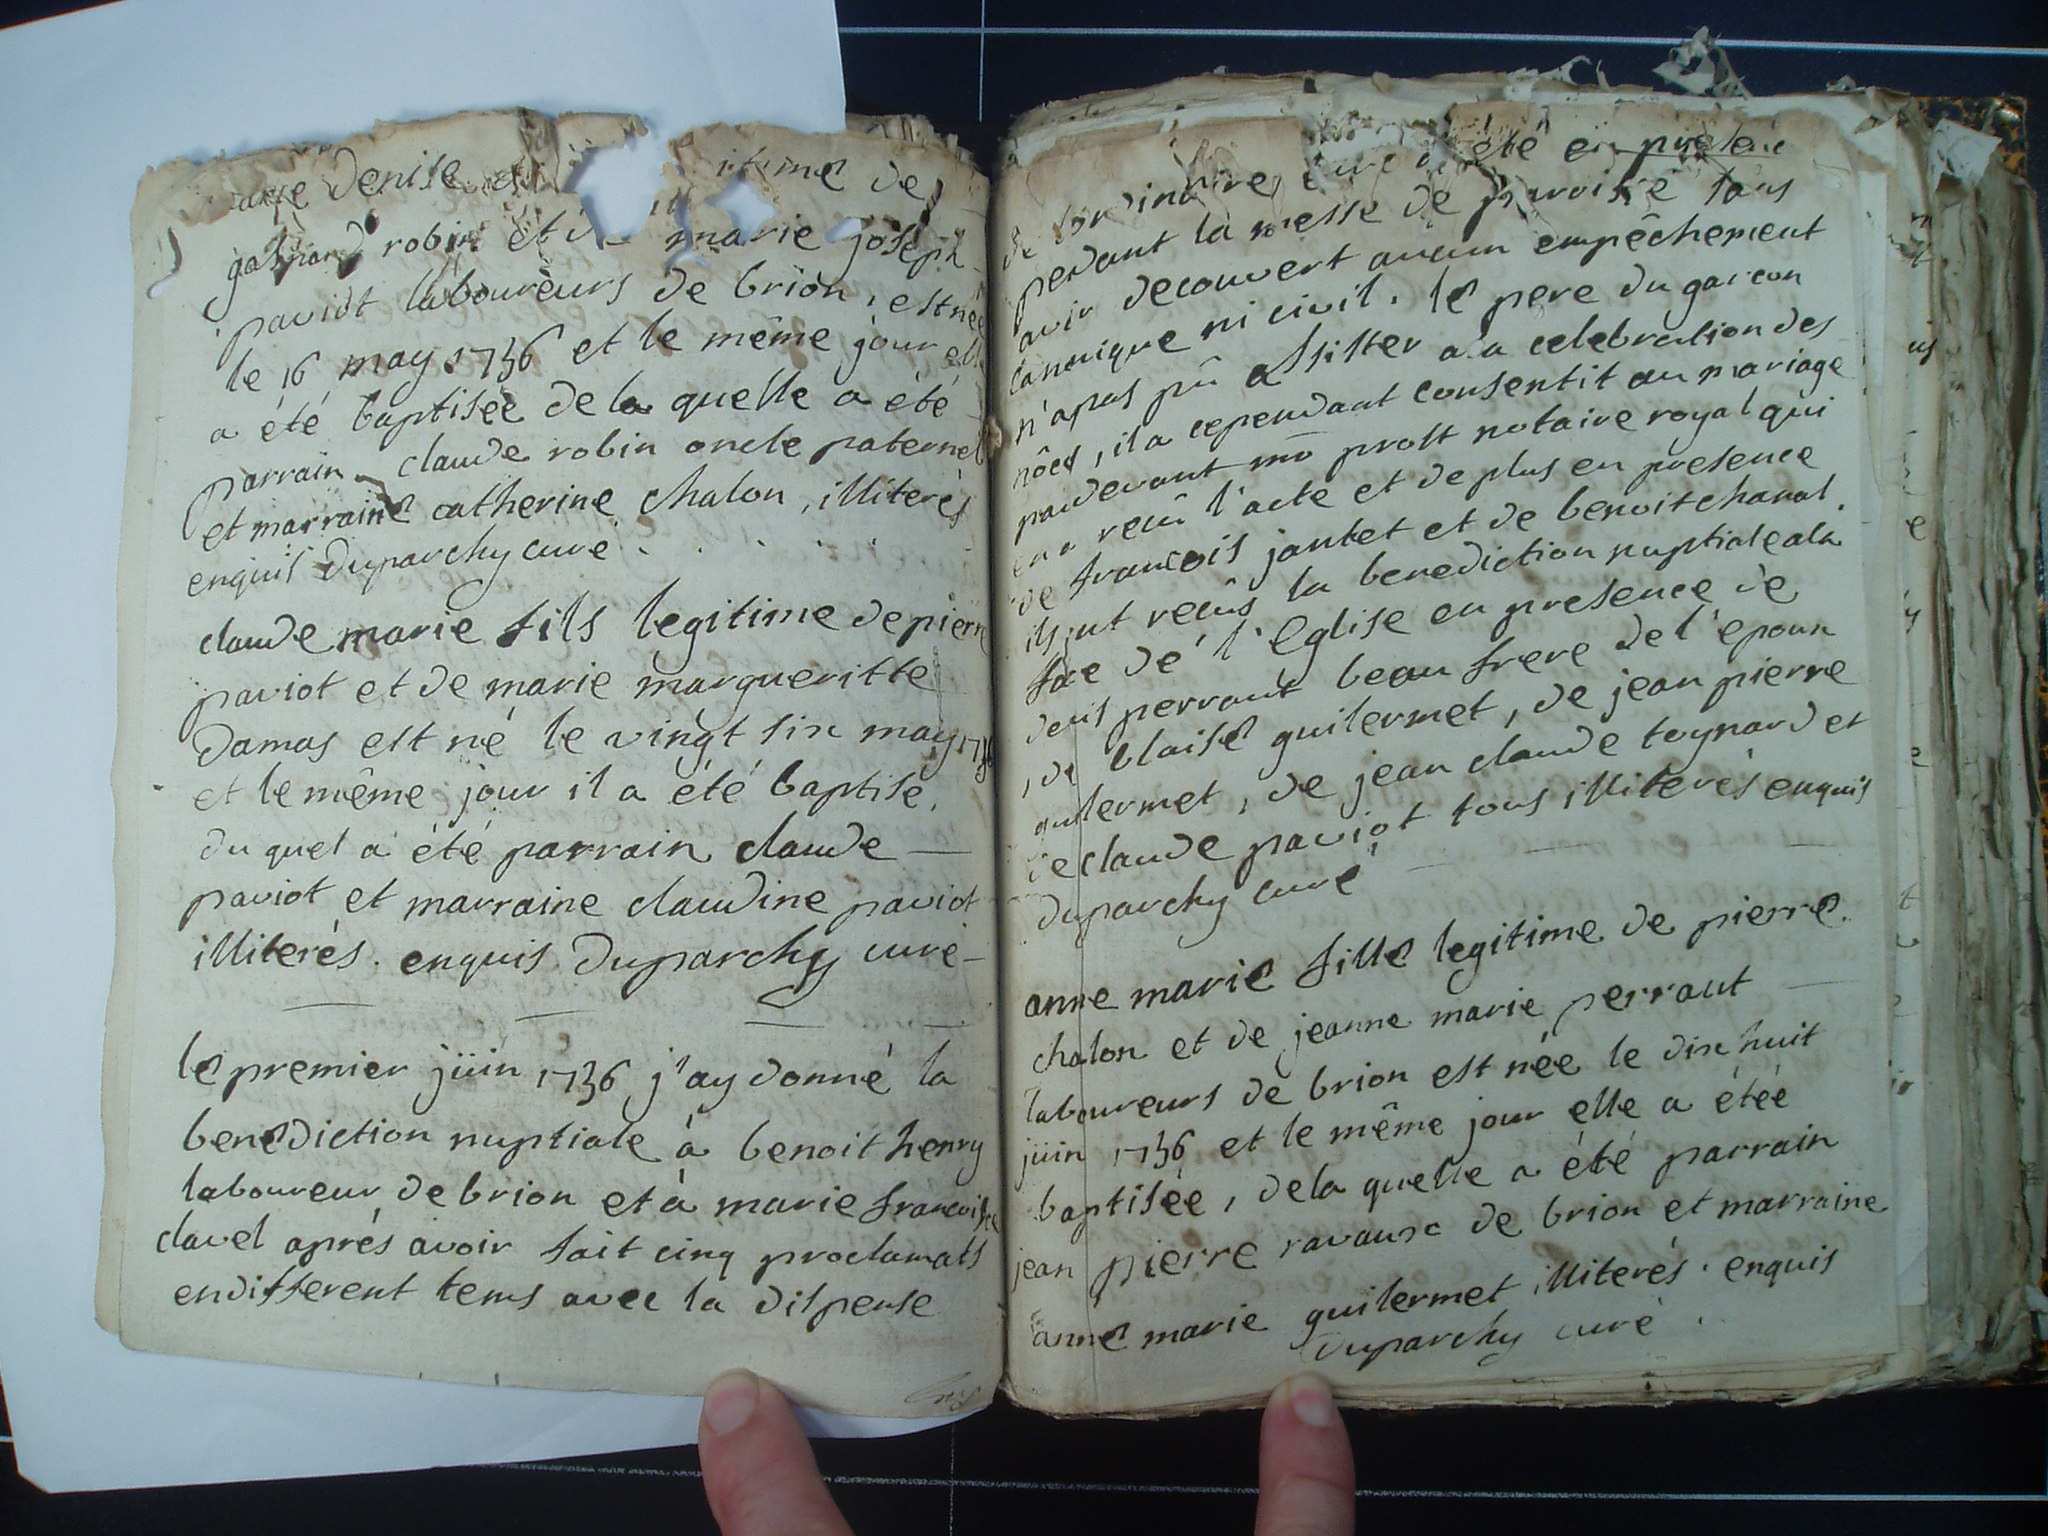 denise de
robin et marie joseph
paviot laboureurs de brion, est née
le 16 may 1736 et le même jour
a été baptisée de la quelle a été
parrain claude robin oncle paternel
et marraine catherine chalon, illiterés
enquis Duparchy curé
claude marie fils legitime de pierre
paviot et de marie margueritte
Damas est né le vingt six may 1736
et le même jour il a été baptisé,
du quel a été parrain claude
paviot et marraine claudine paviot
illiterés. enquis Duparchy curé
le premier juin 1736 j'ay donné la
benediction nuptiale à benoit henry
laboureur de brion et à marie francoise
clavel aprés avoir fait cinq proclamats
en different tems avec la dispense
été en
pendant la messe de paroisse sans
avoir decouvert aucun empêchement
canonique ni civil. le pere du garcon
n'a pas pû assister a la celebration des
nôces, il a cependant consentit au mariage
pardevant prost notaire royal qui
en a recû l'acte et de plus en presence
de francois jantet et de benoit chanal.
ils ont recûs la benediction nuptiale a la
face de l'Eglise en presence de
denis perraut beau frere de l'epoux
, de blaise guilermet, de jean pierre
guilermet, de jean claude toynard et
de claude paviot tous illiterés enquis
Duparchy curé
anne marie fille legitime de pierre
chalon et de jeanne marie perraut
laboureurs de brion est née le dix huit
juin 1736 et le même jour elle a étée
baptisée, de la quelle a été parrain
jean pierre ravaux de brion et marraine
anne marie guilermet illiterés. enquis
Duparchy curé.